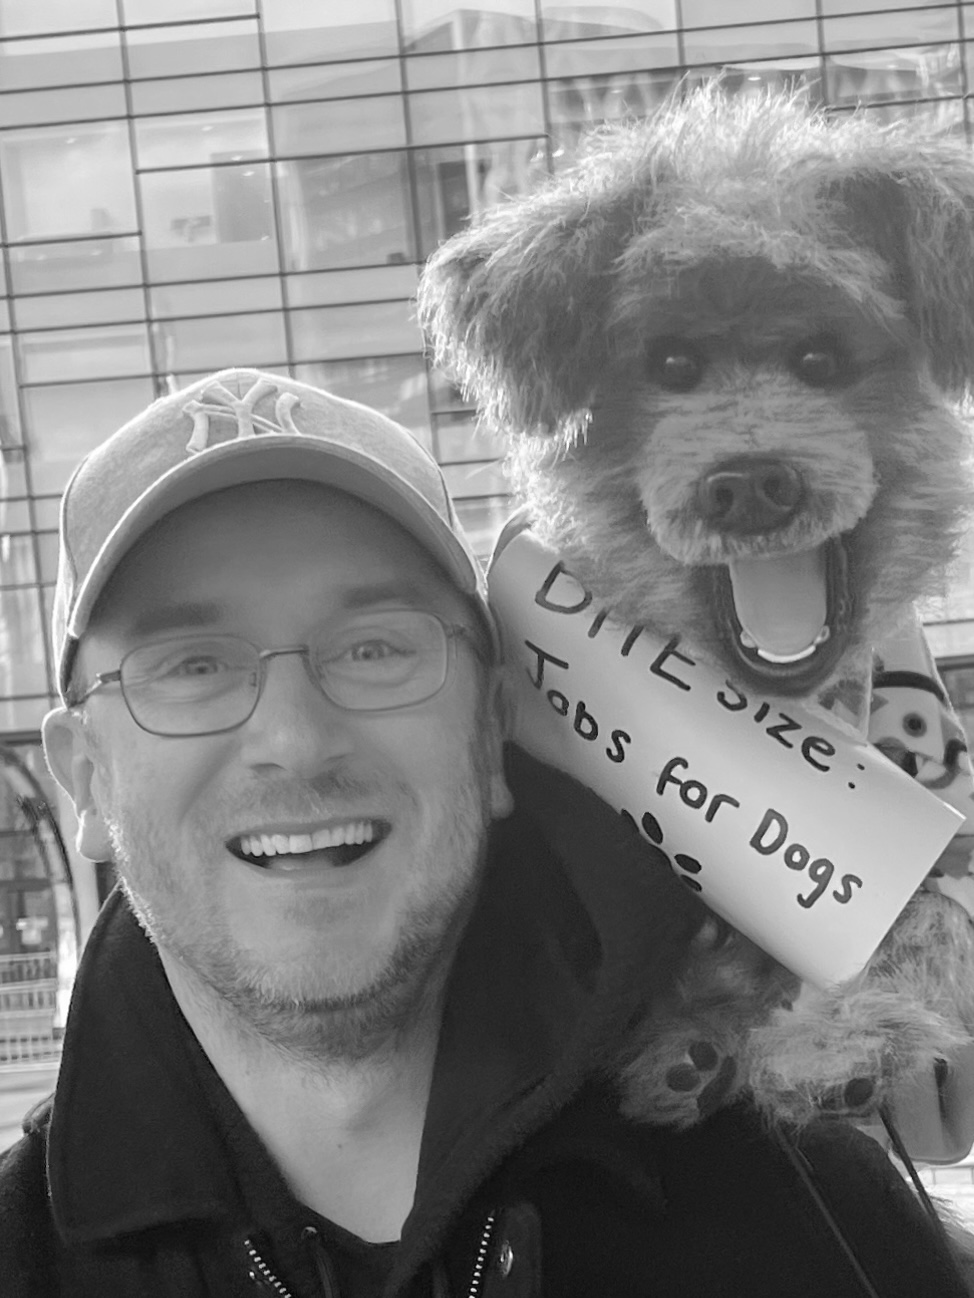 NY
BITE size:
Jobs for Dogs